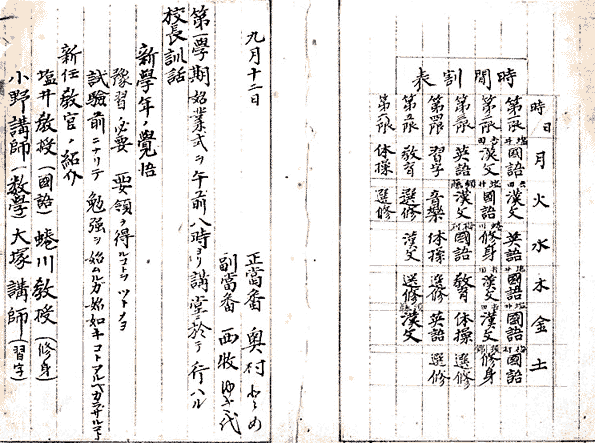 時間割表
時 日 月 火 水 木 金 土
第一限 國語 漢文 英語 國語 國語 國語
第二限 漢文 國語 修身 漢文 漢文 修身
第三限 英語 漢文 國語 教育 体操 選修
第四限 習字 音樂 体操 選修 英語 選修
第五限 教育 選修 漢文 選修 漢文
第六限 体操 選修
九月十二日
正當番 奥村
副當番 西牧
第一學期始業式ヲ午前八時ヨリ講堂ニ於テ行ハル
校長訓話
新學年ノ覺悟
豫習ノ必要 要領ヲ得ルコトヲツトメヨ
試驗前ニナリテ勉強ヲ始ムルガ如キコトアルベカラザルコト
新任教官ノ紹介
塩井教授(國語) 蜷川教授(修身)
小野講師(教學) 大塚講師(習字)